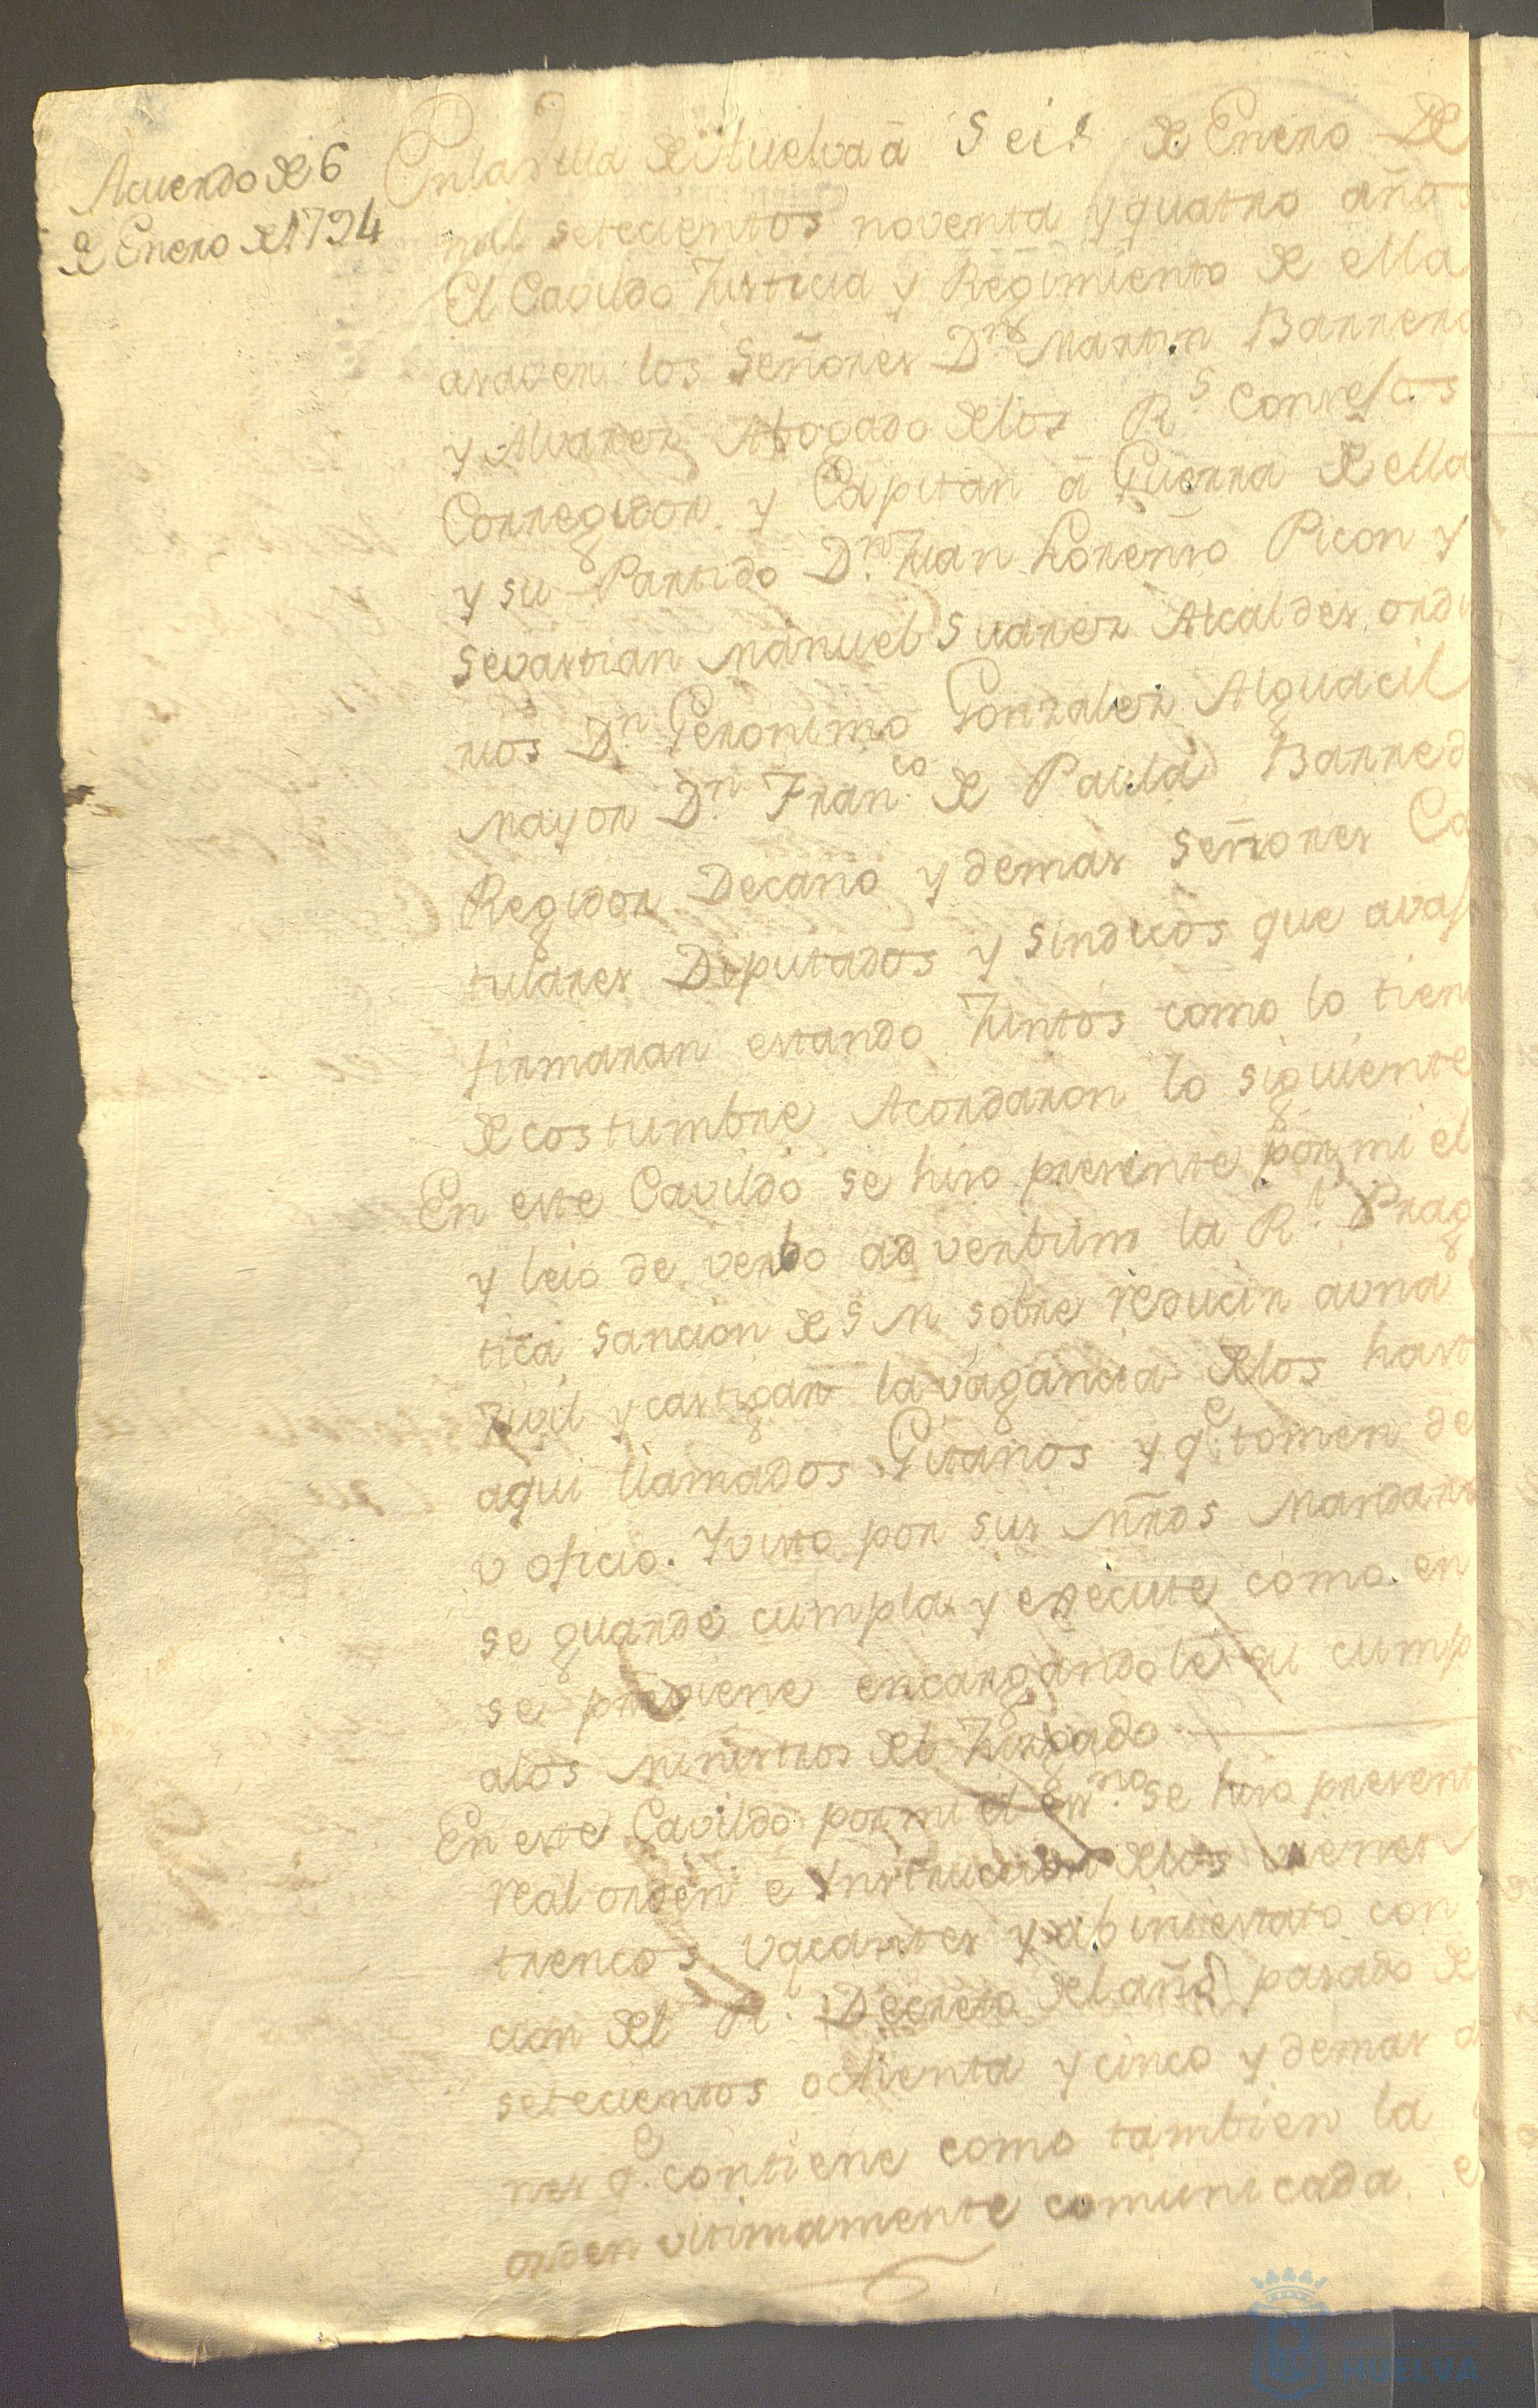 Acuerdo de 6
de Enero de 1794
En la Villa de Huelva â Seis de Enero de
mil setecientos noventa y quatro años
El Cavildo Justicia y Regimiento de ella
asaver los Señores Dn Martin Barrera
y Alvarez Abogado de los Rs Consejos
Corregidor y Capitan â Guerra de ella
y su Partido Dn Juan Lorenso Picon y
Sevastian Manuel Suarez Alcaldes ordi
rios Dn Geronimo Gonzalez Alguacil
mayor Dn Franco de Paula Barred
Regidor Decano y demas Señores Ca
tulares Diputados y Sindicos que avaj
firmaran estando Juntos como lo tien
de costumbre Acordaron lo siguiente
En este Cavildo se hiso presente por mi el
y leio de verbo ad verbum la Rl Prag
tica sancion de S M sobre reducir auna
zivil y castigar la vagancia de los hast
aqui llamados Gitanos y qe tomen de
u oficio. Y visto por sus Mrds Mandaro
se guarde cumpla y execute como en
se previene encargandole su cump
alos ministros del Juzgado
En este Cavildo por mi el Esno se hiso present
real orden e Ynstruccion de los vienes
trencos vacantes y abintestato con
cion del Rl Decreto del año pasado de
setecientos ochenta y cinco y demas
nes qe contiene como tambien la
orden ultimamente comunicada
HUELVA